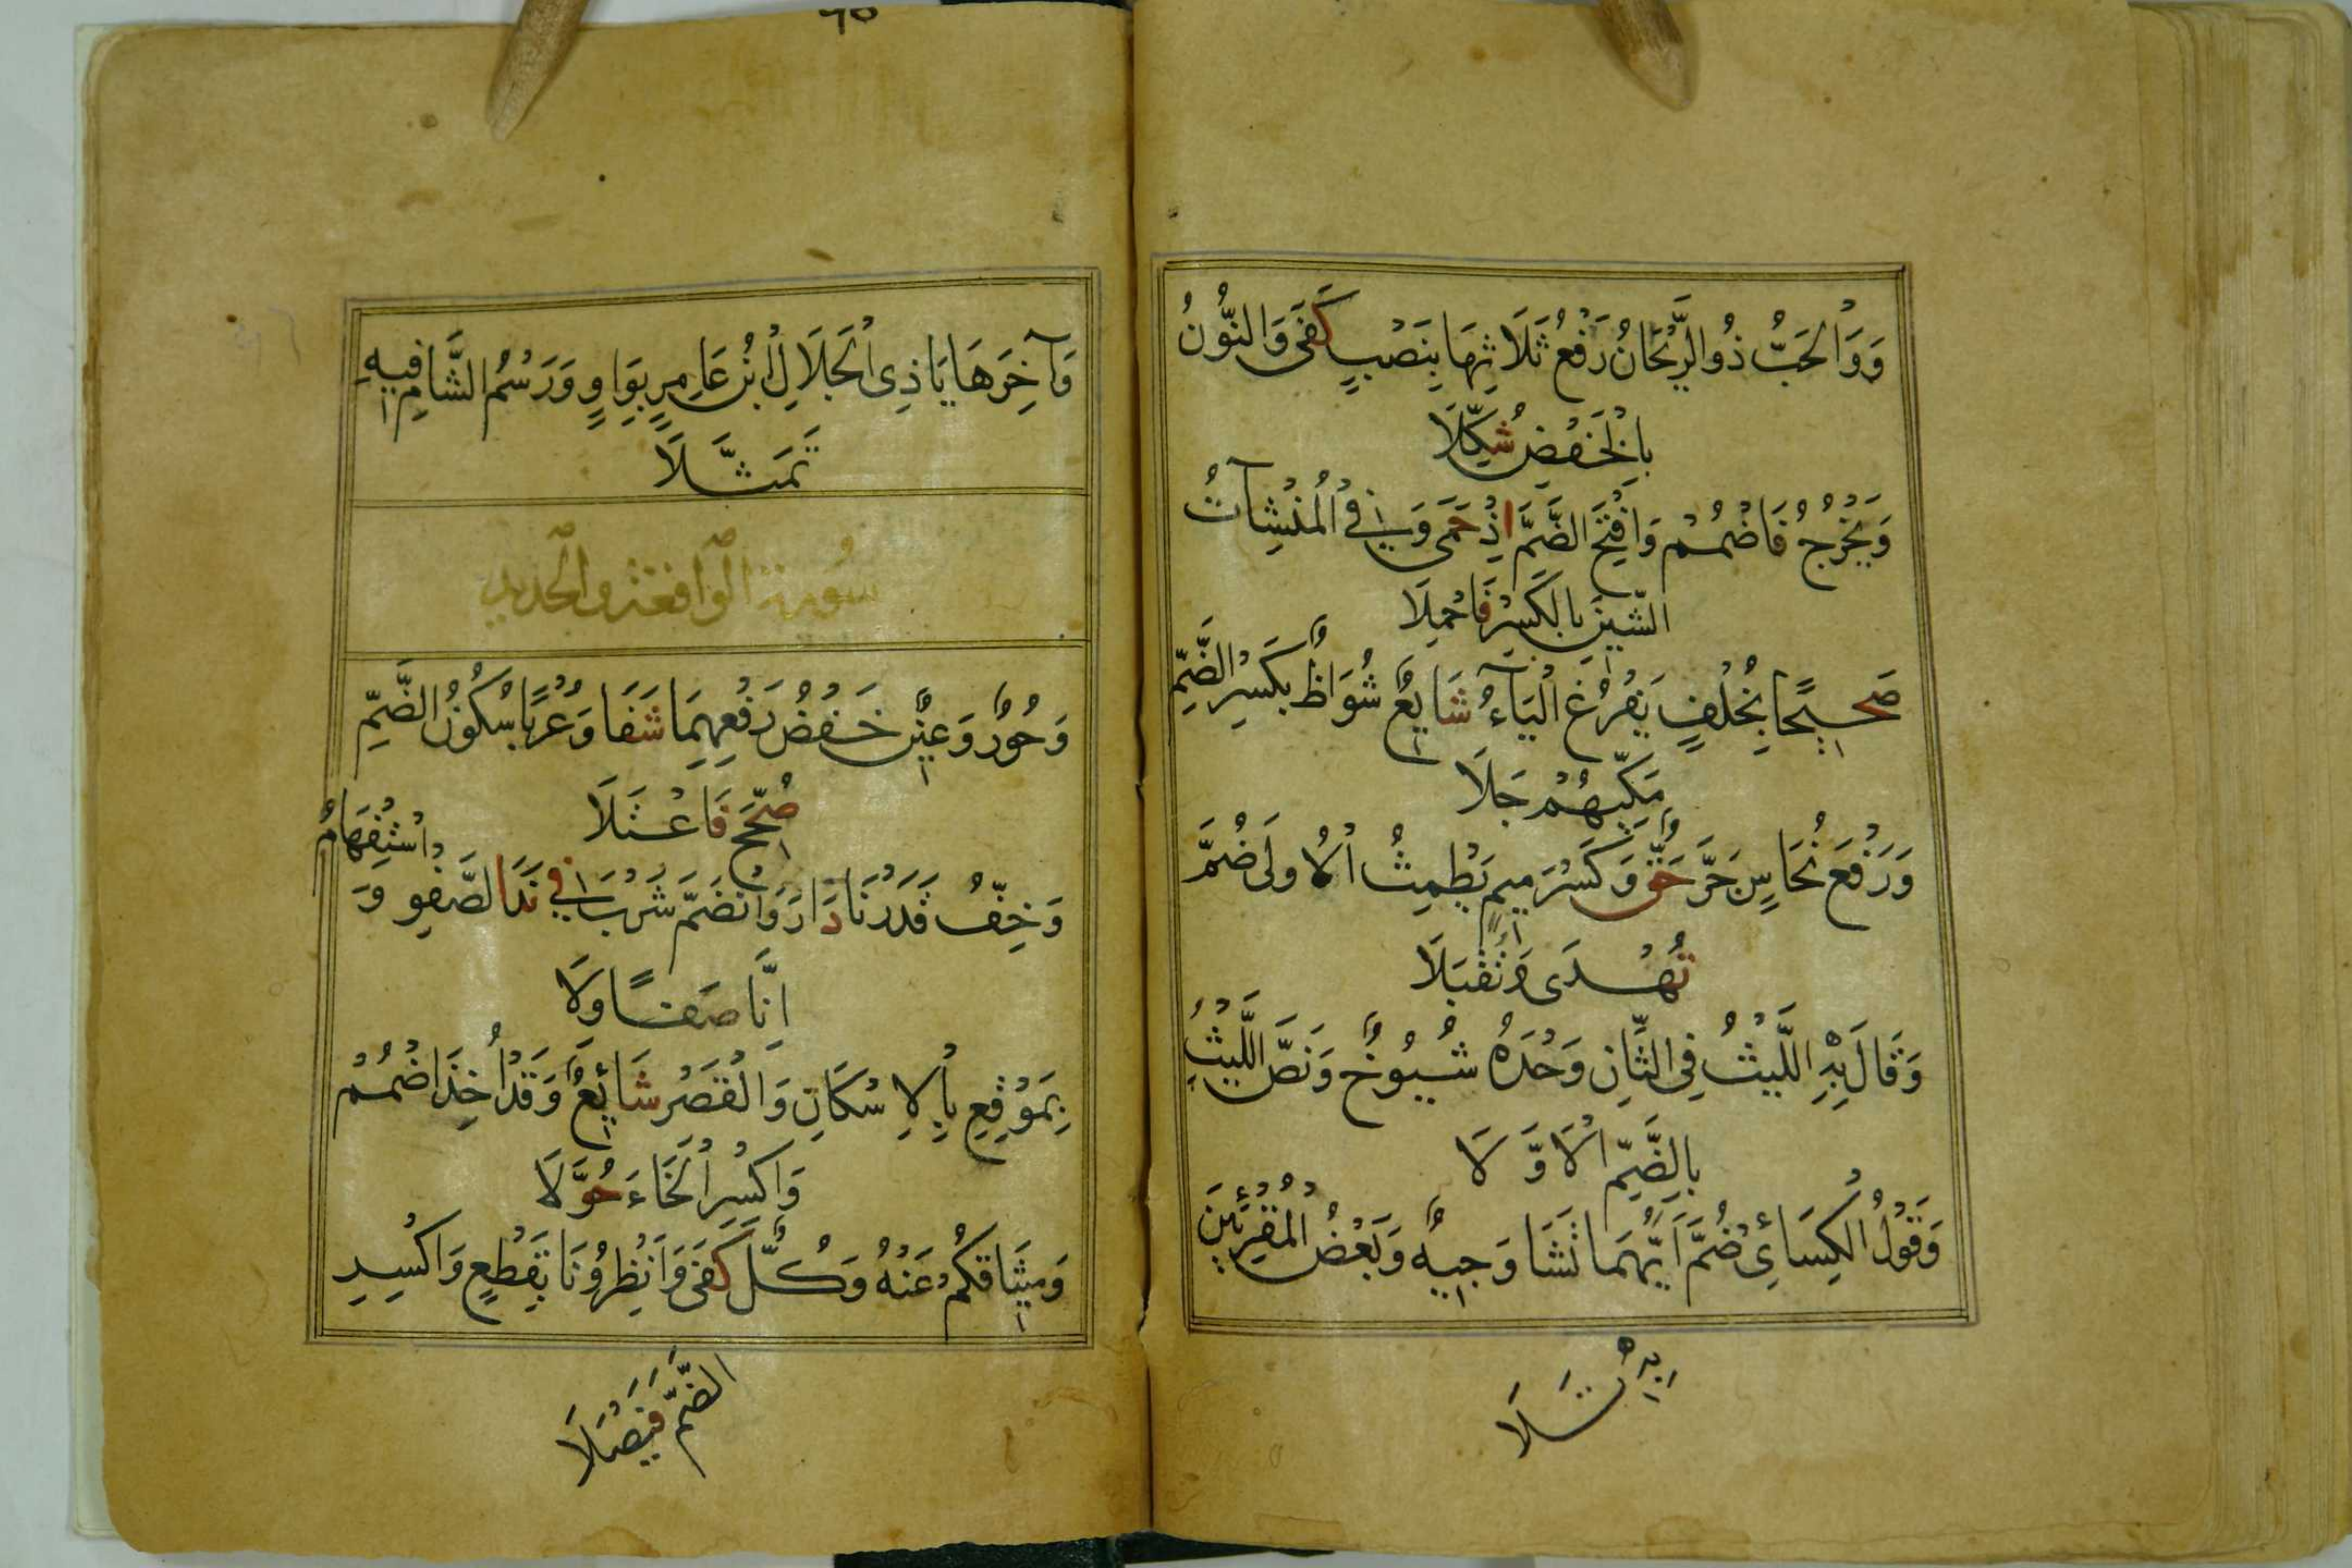 وَوَالْحَبُّ ذُو الرَّيْحَانُ رَفْعُ ثَلَاثِهَا بِنَصْبٍ كَفَى وَالنُّونُ
بِالْخَفْضِ شُكِّلَا
وَيُخْرُجُ فَاضْمُمْ وَافْتَحِ الضَّمَّ اِذْ حَمَى وَ فِي الْمُنْشِآتُ
الشِّينَ بِالْكَسْرِ فَاحْمِلَا
صَحِيحًا بِخُلْفٍ يَفْرُغُ الْيَآءُ شَايِعٌ شُوَاظٌ بِكَسْرِ الضَّمِّ
مَكِّيهُمْ جَلَا
وَرَفْعَ نُحَاسٌ جَرَّ حَقٌّ وَكَسْرَ مِيمِ يَطْمِثْ اْلاُولَى ضُمَّ
تُهْدَى وَتُقْبَلَا
وَقَالَ بِهِ اللَّيْثُ فِي الثَّانِ وَحْدَهُ شُيُوخٌ وَنَصُّ اللَّيْثِ
بِالضَّمِّ الْاَوَّلَا
وَقَوْلُ الْكِسَائِي ضُمَّ اَيَّهُمَا تَشَا وَجِيهٌ وَبَعْضُ الْمُقْرِئِينَ
بِهِ تَلَا
وَآخِرَهَا يَا ذِي الْجَلَالِ ابْنُ عَامِرٍ بِوَاوٍ وَرَسْمُ الشَّامِ فِيهِ
تَمَثَّلَا
سُورة الواقعة والحديد
وَحُورٌ وَعِينٌ خَفْضُ رَفْعِهِمَا شَفَا وَعُرْبًا سُكُونُ الضَّمِّ
صُحِّحَ فَاعْتَلَا
وَخِفُّ قَدَرْنَا دَارَ وَانْضَمَّ شَرْبَ فِي نَدَا الصَّفْوِ وَ
وَاسْتِفْهَامُ
اِنَّا صَفَا وَلَا
بِمَوْقِعِ بِاْلاِسْكَانِ وَالْقَصْرِ شَائِعٌ وَقَدْ اُخِذَ اضْمُمْ
وَاكْسِرِ الْخَاءَ حُوَّلَا
وَمِيثَاقُكُمْ عَنْهُ وَكُلٌّ كَفَى وَاَنْظِرُونَا بِقَطْعٍ وَاكْسِرِ
الضَّمَّ فَيْصَلَا